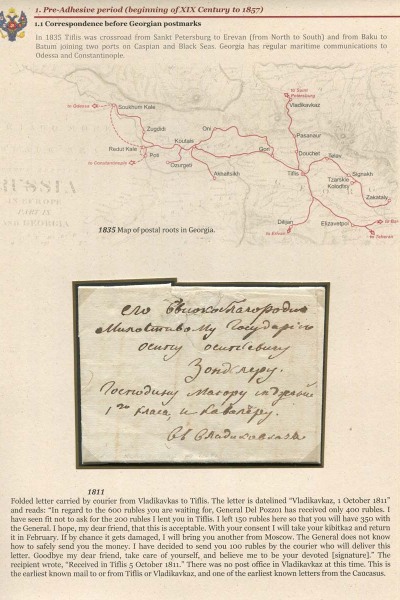 1. Pre-Adhesive period (beginning of XIX Century to 1857)
1.1 Correspondence before Georgian postmarks
In 1835 Tiflis was crossroad from Sankt Petersburg to Erevan (from North to South) and from Baku to
Batum joining two ports on Caspian and Black Seas. Georgia has regular maritime communications to
Odessa and Constantinople.
to Odessa
Soukhum Kale
to Sankt
Petersburg
Vladikavkaz
Zugdidi
Oni
Pasanaur
Redut Kale
Koutais
Douchet
Poti
Gori
Telav
to Constantinople
Ozurgeti
Signakh
Akhaltsikh
Tiflis
Tzarskie
Kolodtsy
Zakataly
RUSSIA
IN EUROPE
PART IN
AND GEORGIA
Dilijan
Elizavetpol
to Erevan
1835 Map of postal roots in Georgia.
его Высокоблагородию
Милостивому Государю
осипу осиповичу
Зондлеру.
Господину Маиору
и Кавалеру.
въ Владикавказъ
1811
Folded letter carried by courier from Vladikavkas to Tiflis. The letter is datelined "Vladikavkaz, 1 October 1811"
and reads: "In regard to the 600 rubles you are waiting for, General Del Pozzo1 has received only 400 rubles. I
have seen fit not to ask for the 200 rubles I lent you in Tiflis. I left 150 rubles here so that you will have 350 with
the General. I hope, my dear friend, that this is acceptable. With your consent I will take your kibitkaz and return
it in February. If by chance it gets damaged, I will bring you another from Moscow. The General does not know
how to safely send you the money. I have decided to send you 100 rubles by the courier who will deliver this
letter. Goodbye my dear friend, take care of yourself, and believe me to be your devoted [signature]." The
recipient wrote, "Received in Tiflis 5 October 1811." There was no post office in Vladikavkaz at this time. This is
the earliest known mail to or from Tiflis or Vladikavkaz, and one of the earliest known letters from the Caucasus.